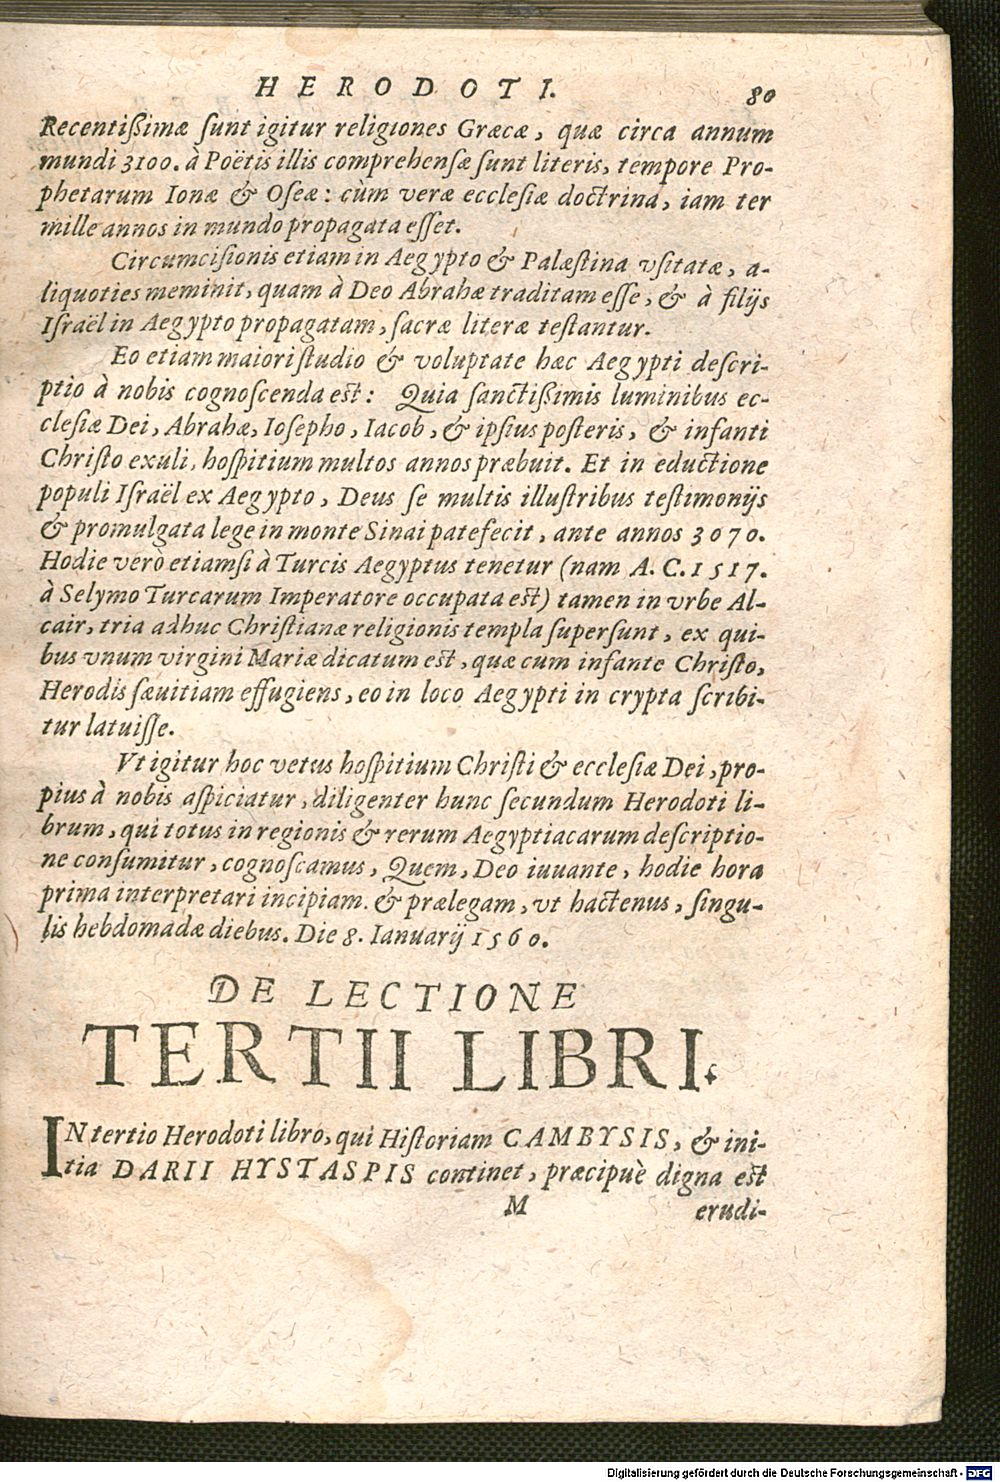 HERODOTI. 80
Recentißimæ ſunt igitur religiones Græcæ, quæ circa annum
mundi 3100. à Poëtis illis comprehenſæ ſunt literis, tempore Pro-
phetarum Ionæ & Oſeæ: cùm veræ eccleſiæ doctrina, iam ter
mille annos in mundo propagata eſſet.
Circumciſionis etiam in Aegypto & Palæſtina vſitatæ, a-
liquoties meminit, quam à Deo Abrahæ traditam eſſe, & à filijs
Iſraël in Aegypto propagatam, ſacræ literæ teſtantur.
Eo etiam maiori ſtudio & voluptate hæc Aegypti deſcri-
ptio à nobis cognoſcenda est: Quia ſanctißimis luminibus ec-
cleſiæ Dei, Abrahæ, Ioſepho, Iacob, & ipſius poſteris, & infanti
Chriſto exuli, hoſpitium multos annos præbuit. Et in eductione
populi Iſraël ex Aegypto, Deus ſe multis illuſtribus teſtimonijs
& promulgata lege in monte Sinai patefecit, ante annos 3070.
Hodie verò etiamſi à Turcis Aegyptus tenetur (nam A. C. 1517.
à Selymo Turcarum Imperatore occupata est) tamen in vrbe Al-
cair, tria adhuc Chriſtianæ religionis templa ſuperſunt, ex qui-
bus vnum virgini Mariæ dicatum est, quæ cum infante Chriſto,
Herodis ſæuitiam effugiens, eo in loco Aegypti in crypta ſcribi-
tur latuiſſe.
Vt igitur hoc vetus hoſpitium Chriſti & eccleſiæ Dei, pro-
pius à nobis aſpiciatur, diligenter hunc ſecundum Herodoti li-
brum, qui totus in regionis & rerum Aegyptiacarum deſcriptio-
ne conſumitur, cognoſcamus, Quem, Deo iuuante, hodie hora
prima interpretari incipiam. & prælegam, vt hactenus, ſingu-
lis hebdomadæ diebus. Die 8. Ianuarij 1560.
DE LECTIONE
TERTII LIBRI.
IN tertio Herodoti libro, qui Hiſtoriam CAMBYSIS, & ini-
tia DARII HYSTASPIS continet, præcipuè digna est
M erudi-
Digitalisierung gefördert durch die Deutsche Forschungsgemeinschaft - DFG